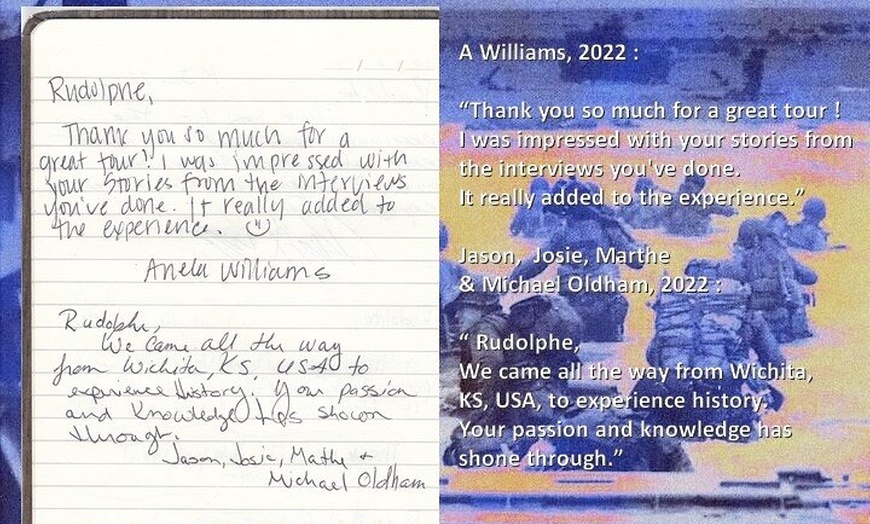 Rudolphe,
Thank you so much for a
great tour! I was impressed with
your stories from the interviews
you've done. It really added to
the experience. ☺
Anela Williams
Rudolphe,
We came all the way
from Wichita, KS, USA to
experience History. Your passion
and Knowledge has shown
through.
Jason, Josie, Marthe +
Michael Oldham
A Williams, 2022 :
“Thank you so much for a great tour !
I was impressed with your stories from
the interviews you've done.
It really added to the experience.”
Jason, Josie, Marthe
& Michael Oldham, 2022 :
“ Rudolphe,
We came all the way from Wichita,
KS, USA, to experience history.
Your passion and knowledge has
shone through.”